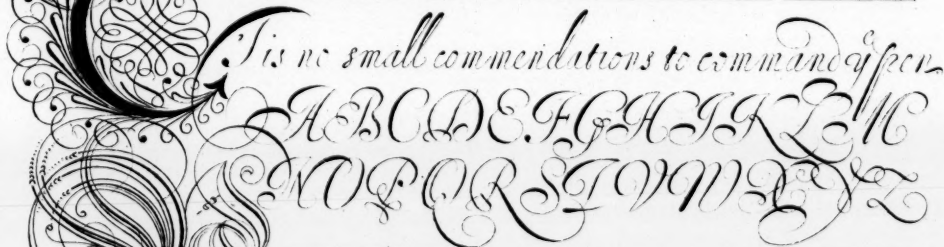 Tis no small commendations to command yᵉ pen
A B C D E F G H I K L M
N O P Q R S T V W X Y Z